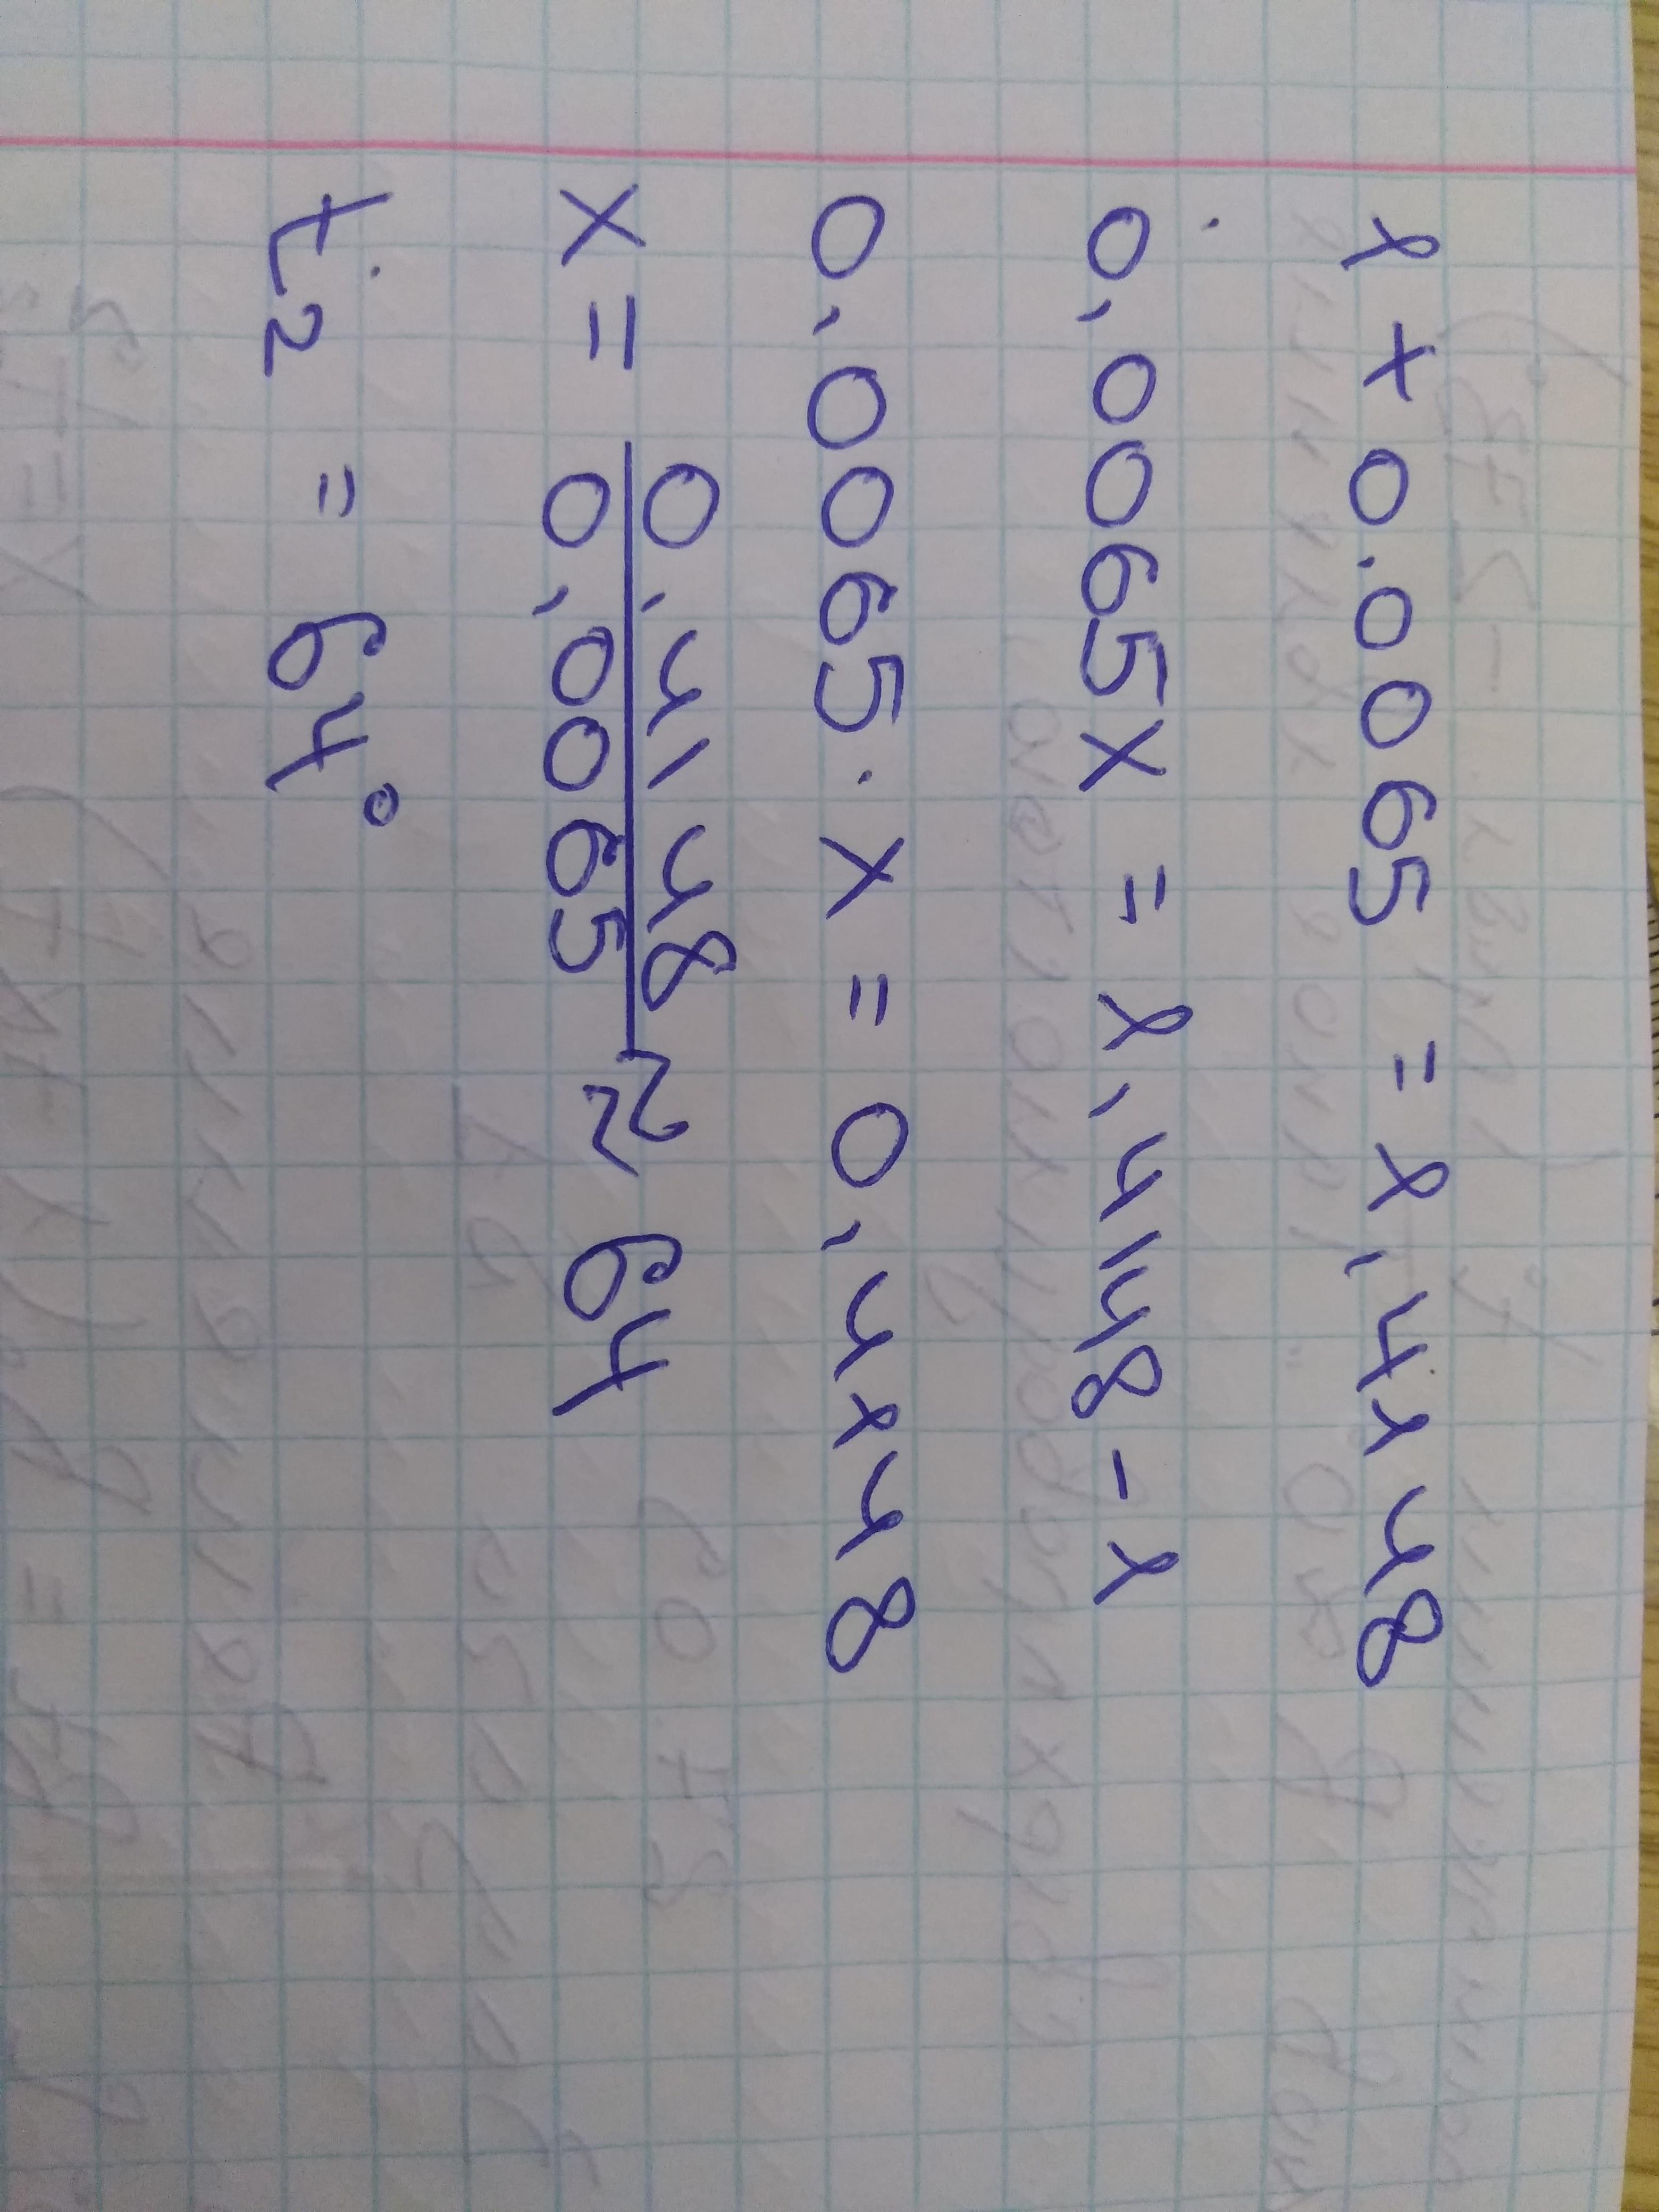 1 + 0.0065 = 1,4148
0,0065x = 1,4148 - 1
0,0065 · x = 0,4148
x = 0,4148 / 0,0065 ≈ 64
t₂ = 64°